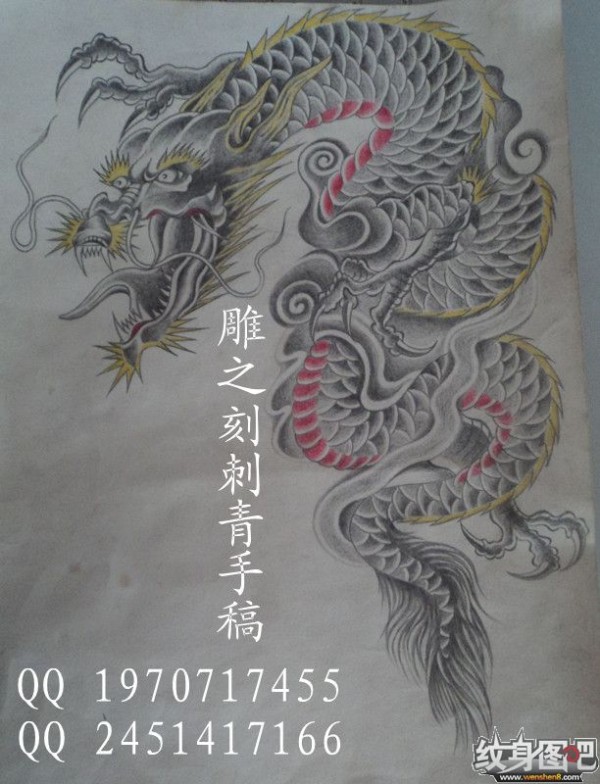 雕之刻刺青手稿
QQ 1970717455
QQ 2451417166
纹身图吧
www.wenshen8.com